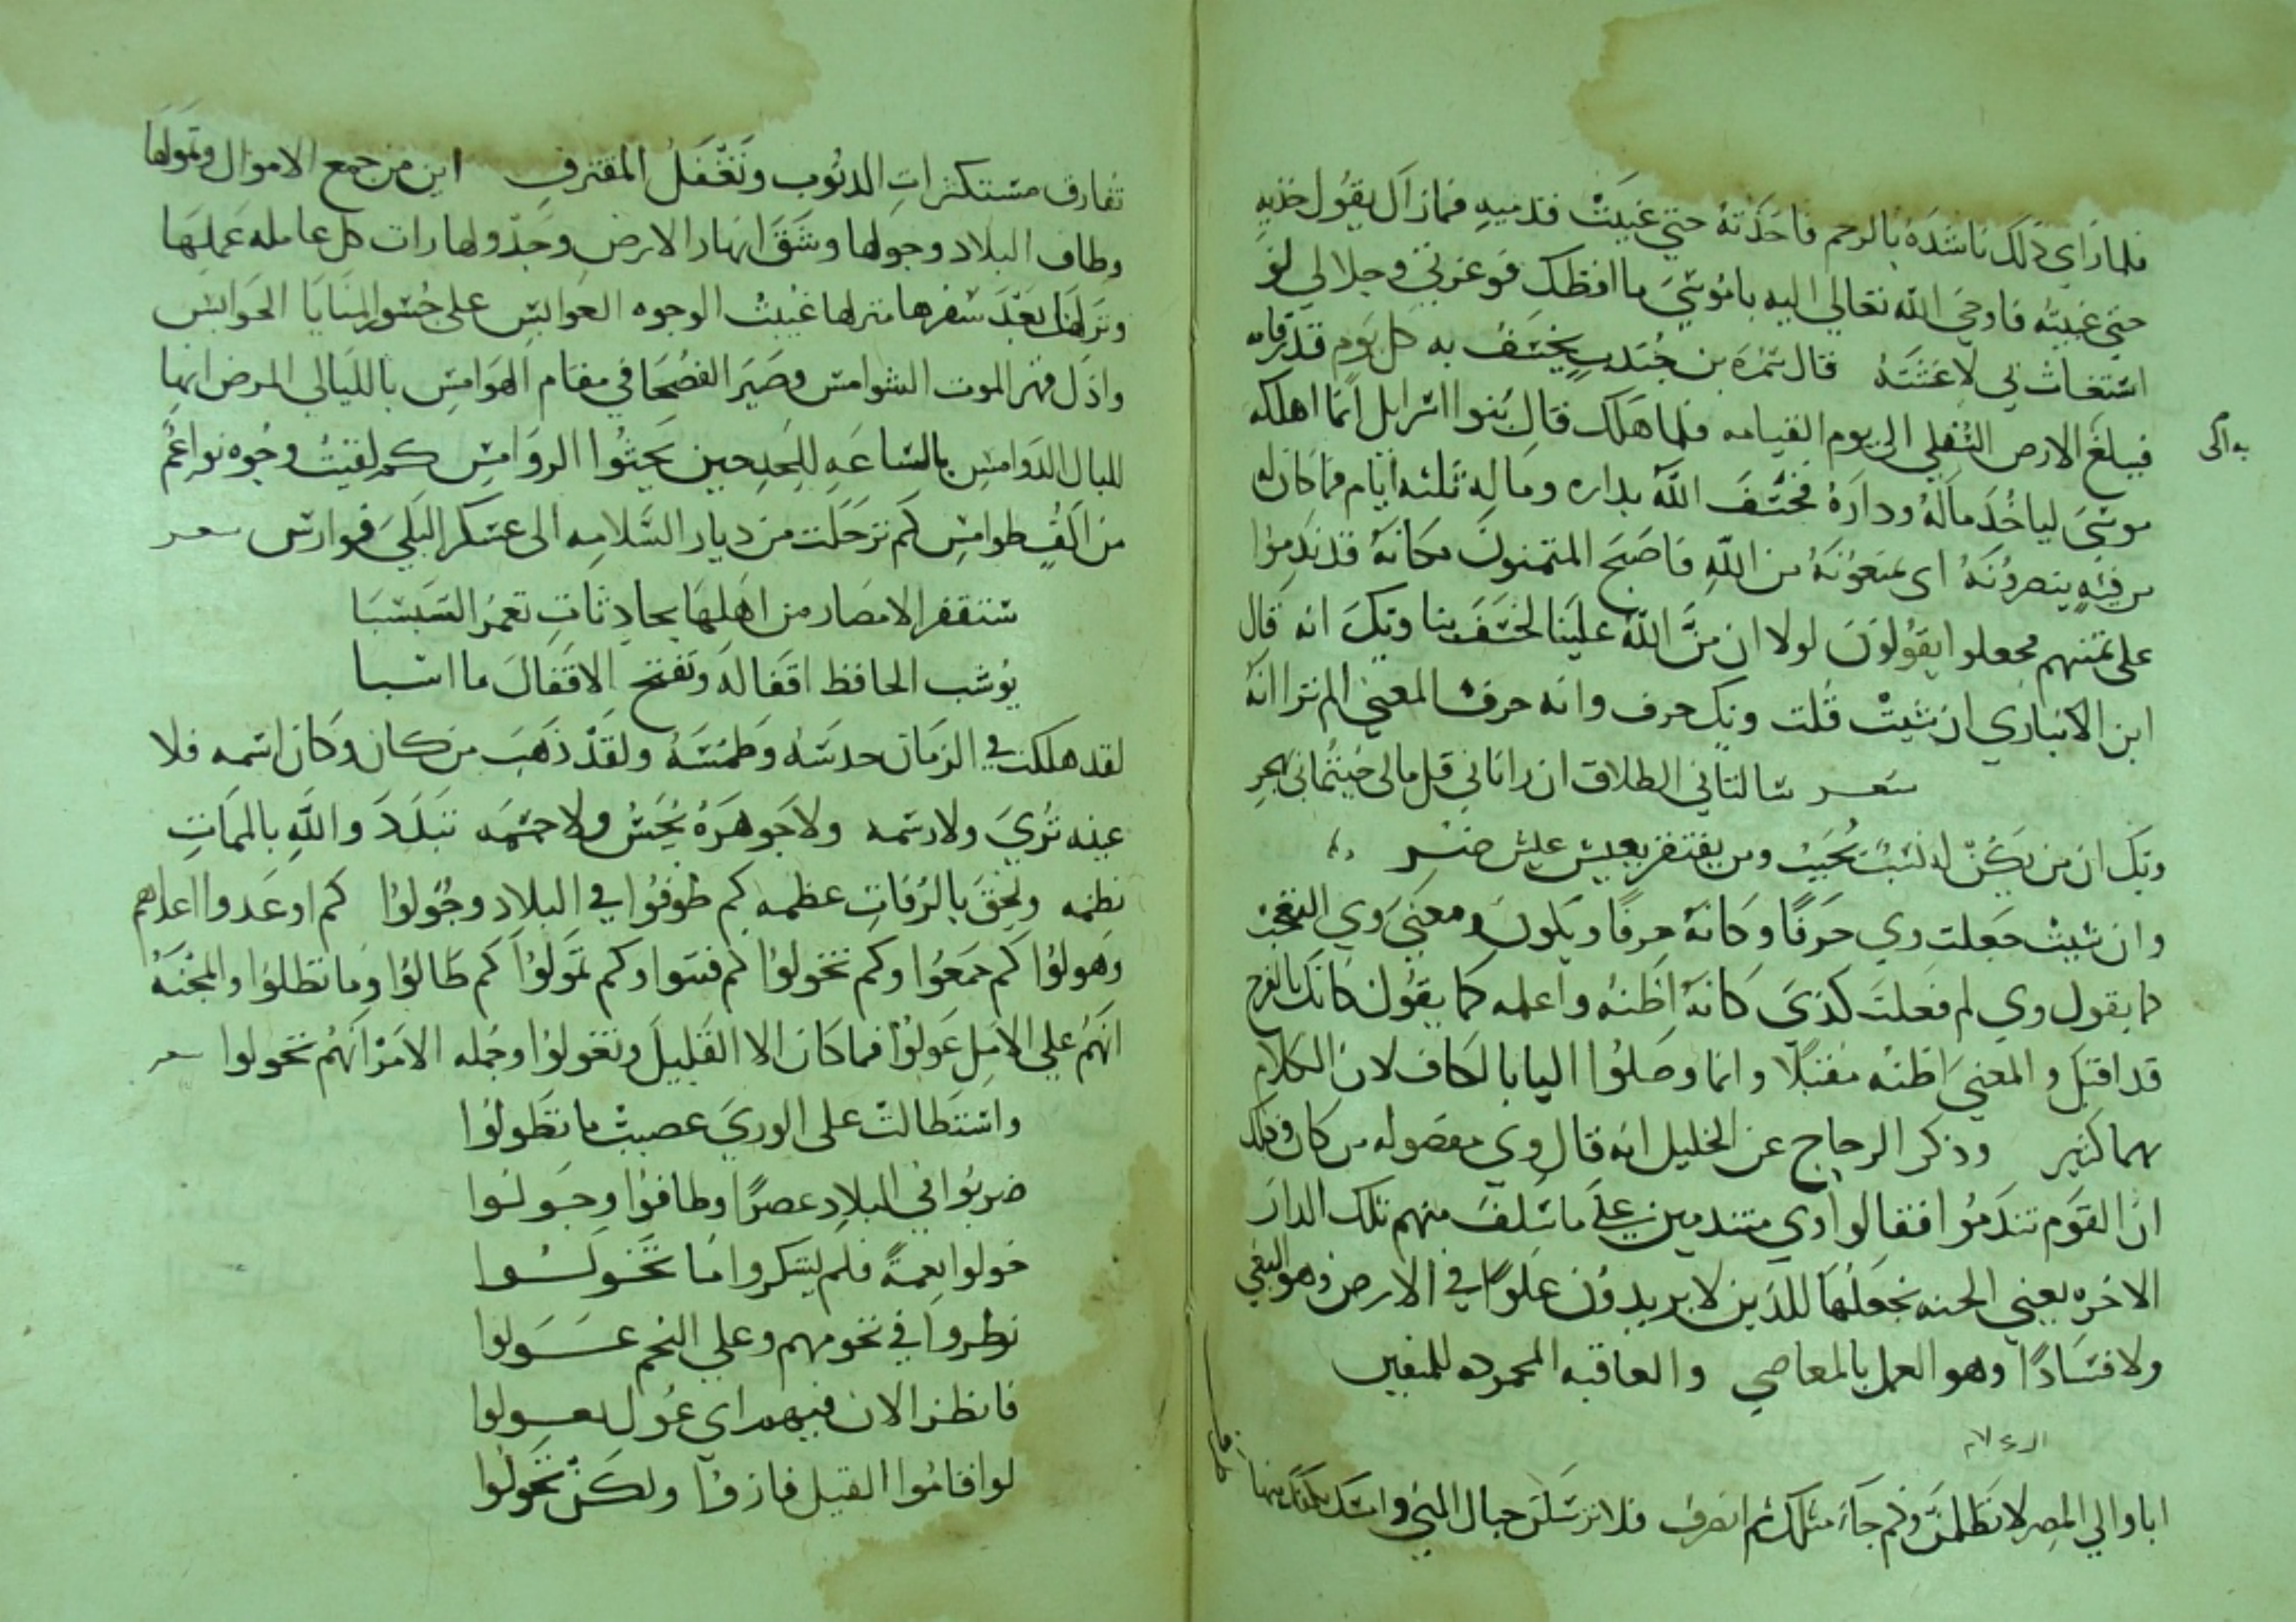 فلما رأى ذلك ناشده بالرحم فاخذته حتى غيبت قدميه فما زال يقول خذيه
حتى غيبته فاوحى الله تعالى اليه يا موسى ما افظك فوعزتي وجلالي لو
استغاث بي لاغثته قال سمرة بن جندب يخسف به كل يوم قدر قامه
فيبلغ الارض السفلى الى يوم القيامه فلما هلك قال بنوا اسرايل انما اهلكه
موسى لياخذ ماله وداره فخسف الله بداره وماله ثلثه ايام فما كان له
من فيه ينصرونه اى يمنعونه من الله فاصبح المتمنون مكانه قد ندموا
على تمنيهم فجعلوا يقولون لولا ان من الله علينا لخسف بنا ويك انه قال
ابن الانباري ان شيت قلت ويك حرف وانه حرف المعنى الم ترا انه
شعر سالتاني الطلاق ان راتاني قل مالى جيتماني بنكر
ويك ان من يكن له نشب يحبب ومن يفتقر يعيش عيش ضر
وان شيت جعلت وي حرفا وكانه حرفا ويكون معنى وي التعجب
كما يقول وي لم فعلت كذى كانه اظنه واعلمه كما يقول كانك بالفرج
قد اقبل والمعنى اظنه مقبلا وانما وصلوا اليا بالكاف لان الكلام
بهما كثير وذكر الزجاج عن الخليل انه قال وي مفصوله من كان وذلك
ان القوم تندموا فقالوا وي متندمين على ما سلف منهم تلك الدار
الاخره يعني الجنه نجعلها للذين لا يريدون علوا في الارض وهو البغي
ولا فسادا وهو العمل بالمعاصي والعاقبه المحموده للمتقين
ايا والي المصر لا تظلمن وكم جاء مثلك ثم انصرف فلا ترسلن حبال المنى وامسك
تفارق مستكثرات الذنوب وتغفل المقترف اين من جمع الاموال وتمولها
وطاف البلاد وجولها وشق انهار الارض وجدولها رات كل عامله عملها
ونزلها بعد سفرها منزلها عبست الوجوه العوابس على جسور المنايا الحوابس
واذل قهر الموت الشوامس وصير الفصحا في مقام الهوامس
كم ترحلت من ديار السلامه الى عسكر البلى فوارس شعر
ستقفر الامصار من اهلها بحادثات تعمر السبسبا
يوشب الحافظ اقفاله وتفتح الاقفال ما اسبا
لقد هلك في الزمان حدسه وطمسه ولقد ذهب من كان وكان اسمه فلا
عينه ترى ولا رسمه ولا جوهره يحس ولا جسمه تبلد والله بالممات
نظمه ولحق بالرفات عظمه كم طوفوا في البلاد وجولوا كم اوعدوا اعداهم
وهولوا كم جمعوا وكم تخولوا كم قسوا وكم تمولوا كم طالوا وما تطلوا والمحنه
انهم على الامل عولوا فما كان الا القليل وتغولوا وجمله الامر انهم تخولوا شعر
واستطالت على الورى عصبت ما تطولوا
ضربوا في البلاد عصرا وطافوا وجولوا
خولوا نعمة فلم يشكروا ما تخولوا
نظروا في نجومهم وعلى النجم عولوا
فانظر الان فيهم اي غول تغولوا
لو اقاموا القتيل فازوا ولكن تحولوا